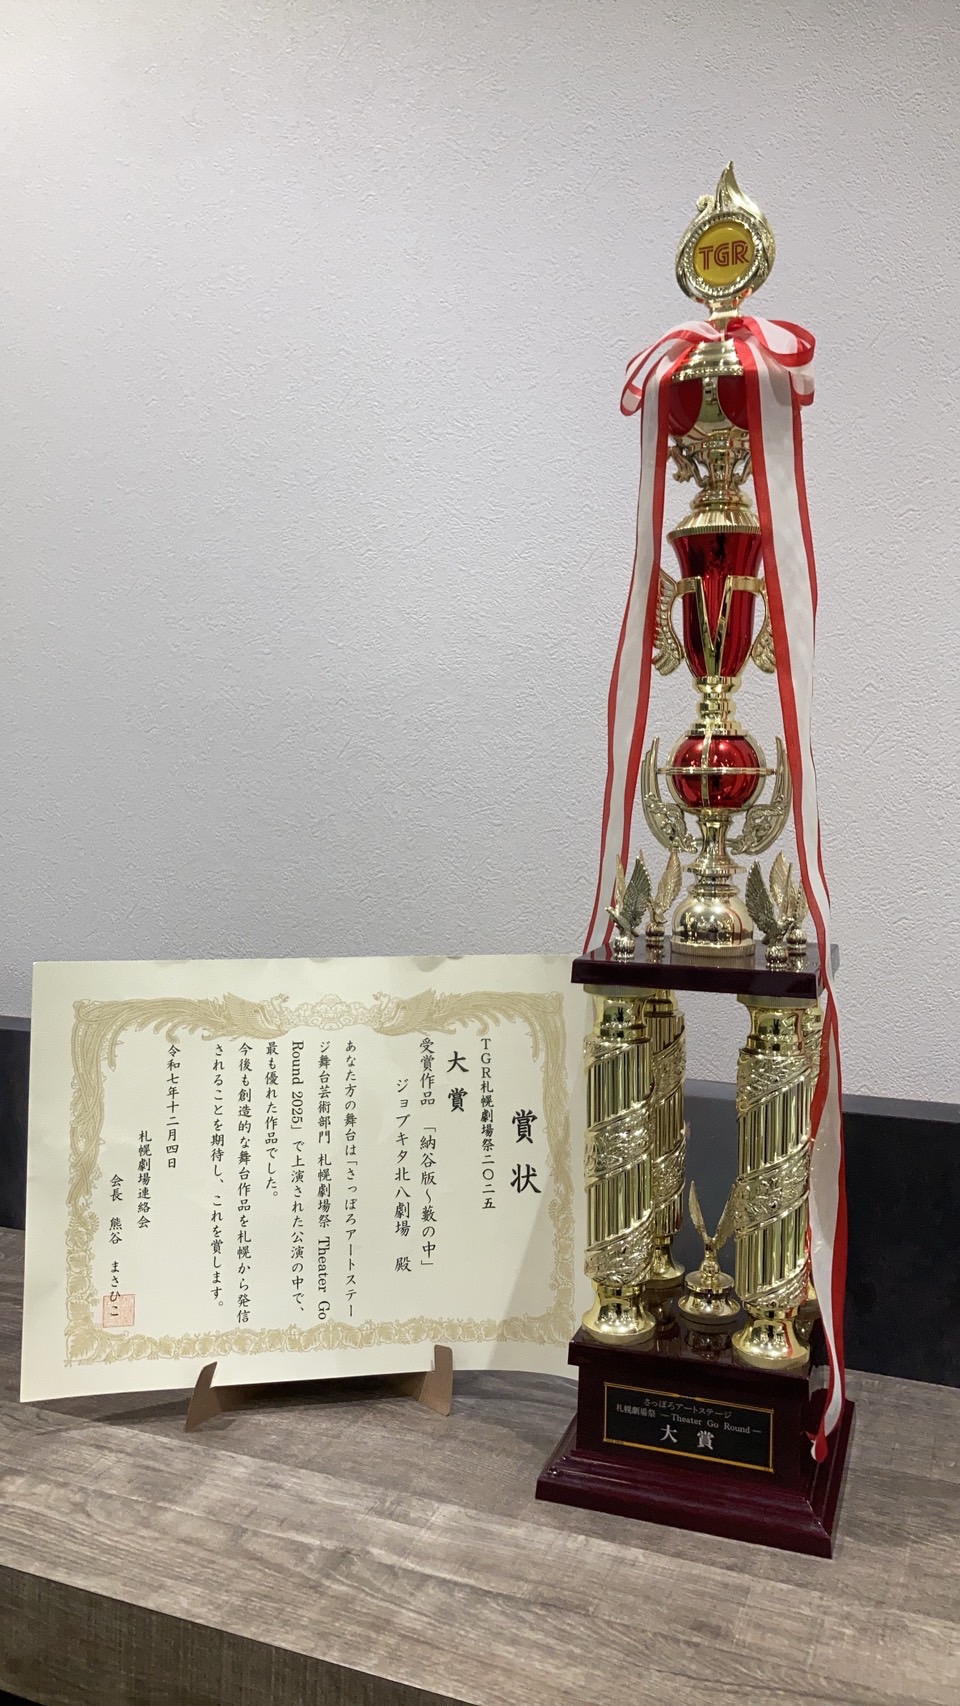 賞状
TGR札幌劇場祭二〇二五
大賞
受賞作品 「納谷版～藪の中」
ジョブキタ北八劇場 殿
あなた方の舞台は「さっぽろアートステー
ジ舞台芸術部門 札幌劇場祭 Theater Go
Round 2025」で上演された公演の中で、
最も優れた作品でした。
今後も創造的な舞台作品を札幌から発信
されることを期待し、これを賞します。
令和七年十二月四日
札幌劇場連絡会
会長 熊谷 まさひこ
TGR
さっぽろアートステージ
札幌劇場祭 ―Theater Go Round―
大賞